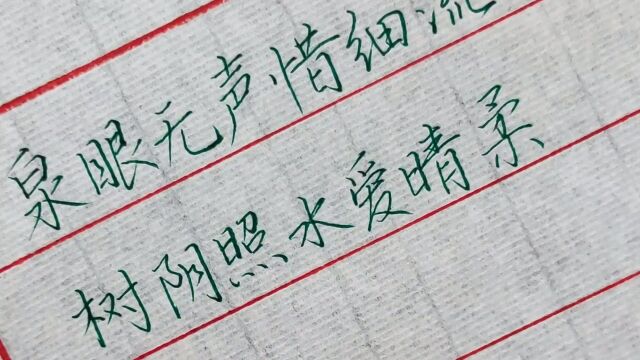 泉眼无声惜细流
树阴照水爱晴柔